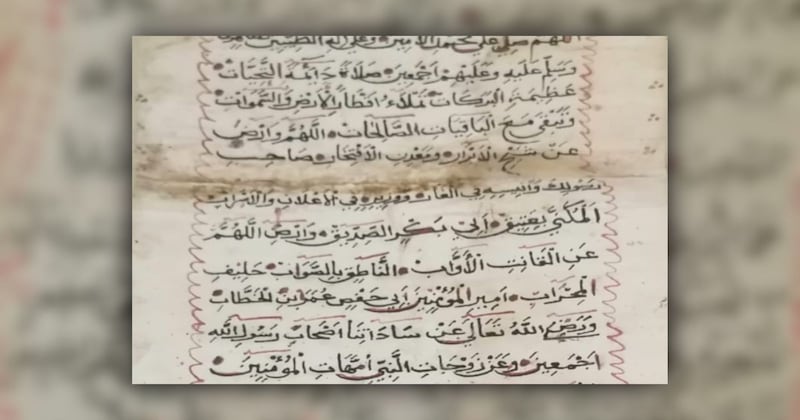 اللهم صلي على محمد الامين وعلى اله الطيبين
وسلم عليه وعليهم اجمعين صلاة دائمة التحيات
عظيمة البركات تملاء اقطار الارض والسموات
وتبقى مع الباقيات الصالحات اللهم وارض
عن شيخ الابرار ومعدن الافتخار صاحب
رسولك وانيسه في الغار ووزيره في الاعلان والاسرار
المكنى بعتيق ابي بكر الصديق وارض اللهم
عن القانت الأواب الناطق بالصواب حليف
المحراب امير المؤمنين ابي حفص عمر ابن الخطاب
وارض الله تعالى عن ساداتنا اصحاب رسول الله
اجمعين وعن زوجات النبي امهات المؤمنين